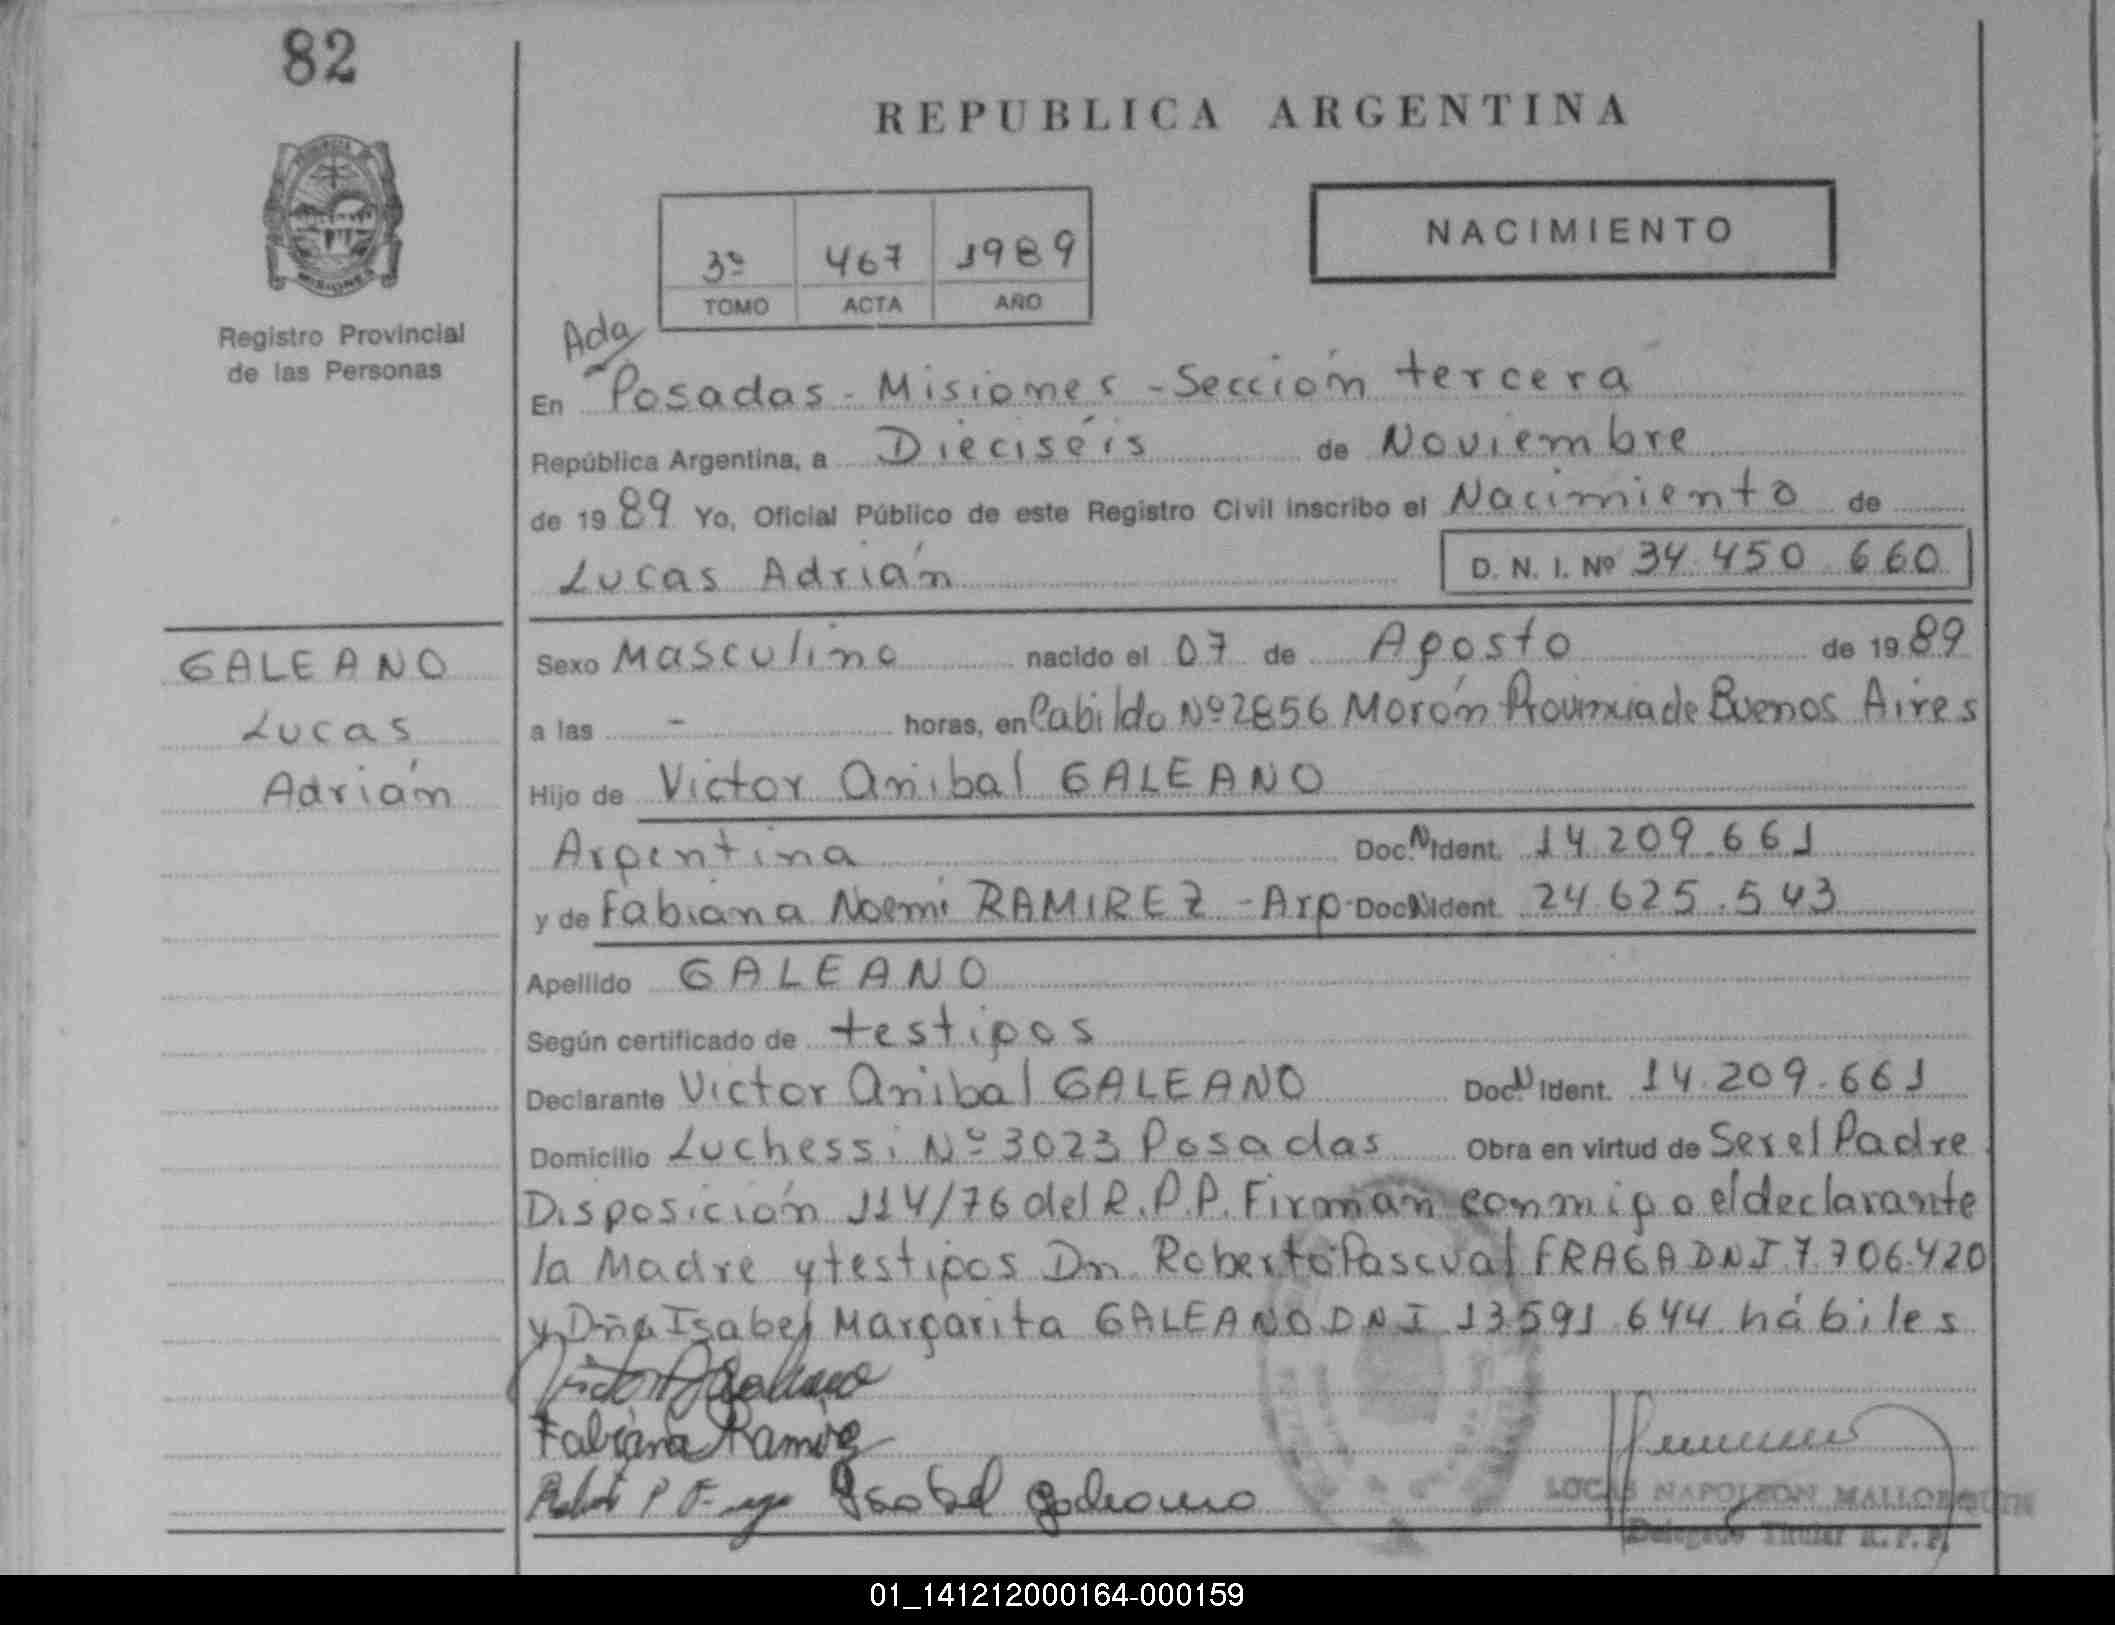 82
REPUBLICA ARGENTINA
PROVINCIA DE MISIONES
Registro Provincial
de las Personas
3º 467 1989
TOMO ACTA AÑO
NACIMIENTO
Ada
En Posadas - Misiones - Sección tercera
República Argentina, a Dieciséis de Noviembre
de 1989 Yo, Oficial Público de este Registro Civil inscribo el Nacimiento de
Lucas Adrián D. N. I. Nº 34.450.660
GALEANO
Lucas
Adrián
Sexo Masculino nacido el 07 de Agosto de 1989
a las - horas, en Cabildo Nº 2856 Morón Provincia de Buenos Aires
Hijo de Victor Anibal GALEANO
Argentina Doc. N Ident. 14.209.661
y de Fabiana Noemi RAMIREZ - Arg. Doc. N Ident. 24.625.543
Apellido GALEANO
Según certificado de testigos
Declarante Victor Anibal GALEANO Doc. N Ident. 14.209.661
Domicilio Luchessi Nº 3023 Posadas Obra en virtud de Ser el Padre
Disposición 114/76 del R.P.P. Firman conmigo el declarante
la Madre y testigos Dn. Roberto Pascual FRAGA DNI 7.706.420
y Dña Isabel Margarita GALEANO DNI 13.591.644 hábiles
Victor A Galeano
Fabiana Ramirez
Isabel Galeano
LUCAS NAPOLEON MALLORQUIN
Delegado Titular R. P. P.
01_141212000164-000159